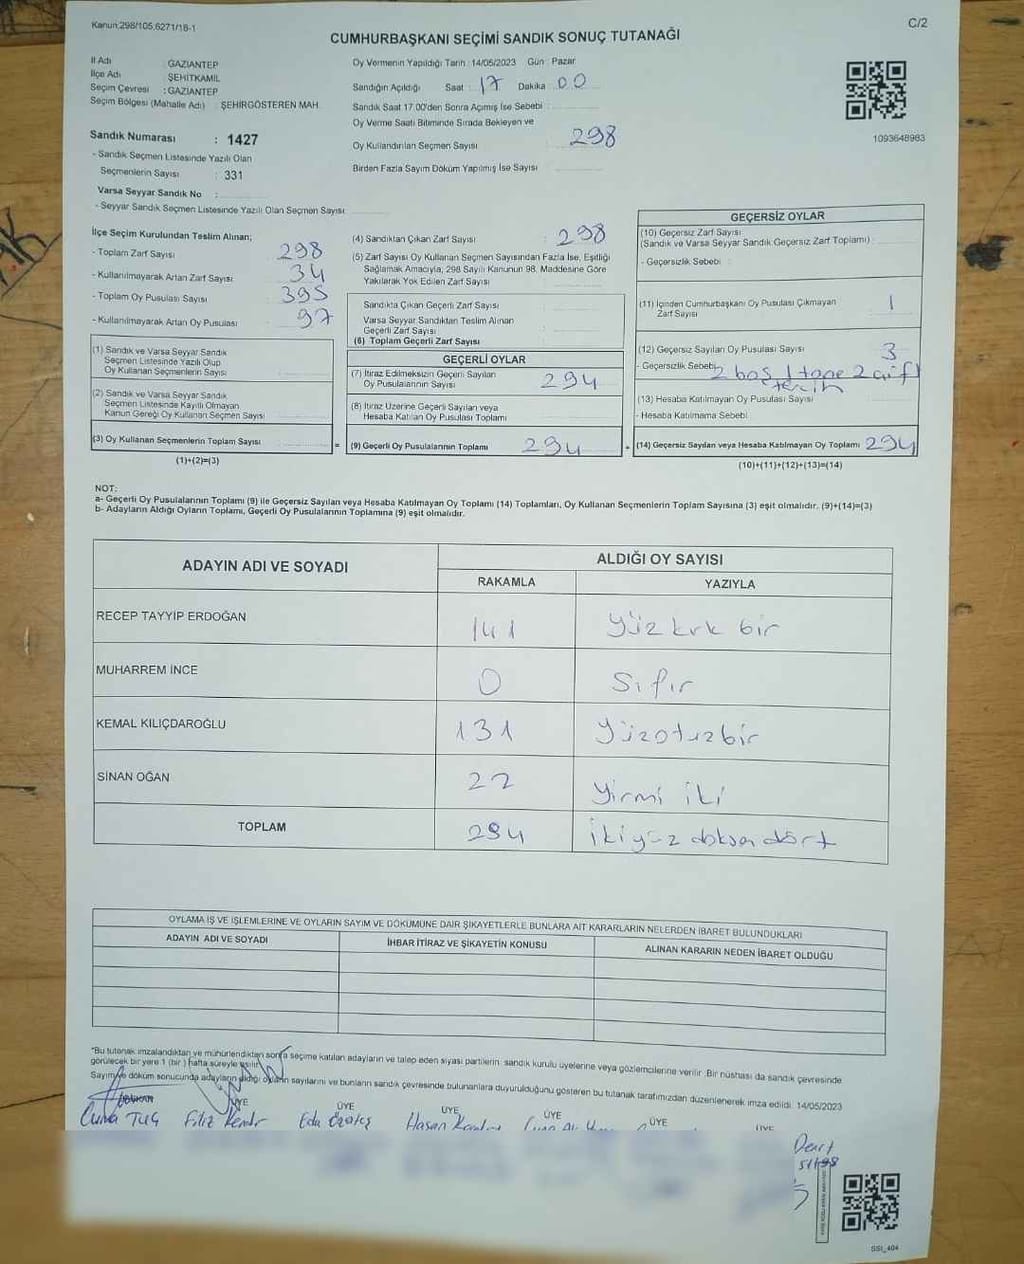 Kanun:298/105,6271/18-1
C/2
CUMHURBAŞKANI SEÇİMİ SANDIK SONUÇ TUTANAĞI
İl Adı : GAZİANTEP
İlçe Adı : ŞEHİTKAMİL
Seçim Çevresi : GAZİANTEP
Seçim Bölgesi (Mahalle Adı) : ŞEHİRGÖSTEREN MAH.
Sandık Numarası : 1427
- Sandık Seçmen Listesinde Yazılı Olan
Seçmenlerin Sayısı : 331
Varsa Seyyar Sandık No :
- Seyyar Sandık Seçmen Listesinde Yazılı Olan Seçmen Sayısı
Oy Vermenin Yapıldığı Tarih : 14/05/2023 Gün : Pazar
Sandığın Açıldığı Saat : 17 Dakika : 00
Sandık Saat 17.00'den Sonra Açımış İse Sebebi :
Oy Verme Saati Bitiminde Sırada Bekleyen ve
Oy Kullandırılan Seçmen Sayısı : 298
Birden Fazla Sayım Döküm Yapılmış İse Sayısı :
1093648983
İlçe Seçim Kurulundan Teslim Alınan;
- Toplam Zarf Sayısı : 298
- Kullanılmayarak Artan Zarf Sayısı : 34
- Toplam Oy Pusulası Sayısı : 395
- Kullanılmayarak Artan Oy Pusulası : 97
(1) Sandık ve Varsa Seyyar Sandık
Seçmen Listesinde Yazılı Olup
Oy Kullanan Seçmenlerin Sayısı :
(2) Sandık ve Varsa Seyyar Sandık
Seçmen Listesinde Kayıtlı Olmayan
Kanun Gereği Oy Kullanan Seçmen Sayısı :
(3) Oy Kullanan Seçmenlerin Toplam Sayısı :
(1)+(2)=(3)
(4) Sandıktan Çıkan Zarf Sayısı : 298
(5) Zarf Sayısı Oy Kullanan Seçmen Sayısından Fazla İse, Eşitliği
Sağlamak Amacıyla; 298 Sayılı Kanunun 98. Maddesine Göre
Yakılarak Yok Edilen Zarf Sayısı :
Sandıkta Çıkan Geçerli Zarf Sayısı :
Varsa Seyyar Sandıktan Teslim Alınan
Geçerli Zarf Sayısı :
(6) Toplam Geçerli Zarf Sayısı :
GEÇERLİ OYLAR
(7) İtiraz Edilmeksizin Geçerli Sayılan
Oy Pusulalarının Sayısı : 294
(8) İtiraz Üzerine Geçerli Sayılan veya
Hesaba Katılan Oy Pusulası Toplamı :
= (9) Geçerli Oy Pusulalarının Toplamı : 294
GEÇERSİZ OYLAR
(10) Geçersiz Zarf Sayısı
(Sandık ve Varsa Seyyar Sandık Geçersiz Zarf Toplamı) :
- Geçersizlik Sebebi :
(11) İçinden Cumhurbaşkanı Oy Pusulası Çıkmayan
Zarf Sayısı : 1
(12) Geçersiz Sayılan Oy Pusulası Sayısı : 3
- Geçersizlik Sebebi : 2 boş 1 tane
tercih
(13) Hesaba Katılmayan Oy Pusulası Sayısı :
- Hesaba Katılmama Sebebi :
+ (14) Geçersiz Sayılan veya Hesaba Katılmayan Oy Toplamı : 294
(10)+(11)+(12)+(13)=(14)
NOT:
a- Geçerli Oy Pusulalarının Toplamı (9) ile Geçersiz Sayılan veya Hesaba Katılmayan Oy Toplamı (14) Toplamları, Oy Kullanan Seçmenlerin Toplam Sayısına (3) eşit olmalıdır. (9)+(14)=(3)
b- Adayların Aldığı Oyların Toplamı, Geçerli Oy Pusulalarının Toplamına (9) eşit olmalıdır.
ADAYIN ADI VE SOYADI
ALDIĞI OY SAYISI
RAKAMLA YAZIYLA
RECEP TAYYİP ERDOĞAN 141 Yüz kırk bir
MUHARREM İNCE 0 Sıfır
KEMAL KILIÇDAROĞLU 131 Yüzotuzbir
SİNAN OĞAN 22 Yirmi iki
TOPLAM 294 ikiyüz doksan dört
OYLAMA İŞ VE İŞLEMLERİNE VE OYLARIN SAYIM VE DÖKÜMÜNE DAİR ŞİKAYETLERLE BUNLARA AİT KARARLARIN NELERDEN İBARET BULUNDUKLARI
ADAYIN ADI VE SOYADI İHBAR İTİRAZ VE ŞİKAYETİN KONUSU ALINAN KARARIN NEDEN İBARET OLDUĞU
*Bu tutanak imzalandıktan ve mühürlendikten sonra seçime katılan adayların ve talep eden siyasi partilerin sandık kurulu üyelerine veya gözlemcilerine verilir. Bir nüshası da sandık çevresinde
görülecek bir yere 1 (bir ) hafta süreyle asılır.
Sayım ve döküm sonucunda adayların aldığı oyların sayılarını ve bunların sandık çevresinde bulunanlara duyurulduğunu gösteren bu tutanak tarafımızdan düzenlenerek imza edildi. 14/05/2023
BAŞKAN ÜYE ÜYE ÜYE ÜYE ÜYE ÜYE
Cuma TUĞ Filiz Eda Hasan
SSI_404